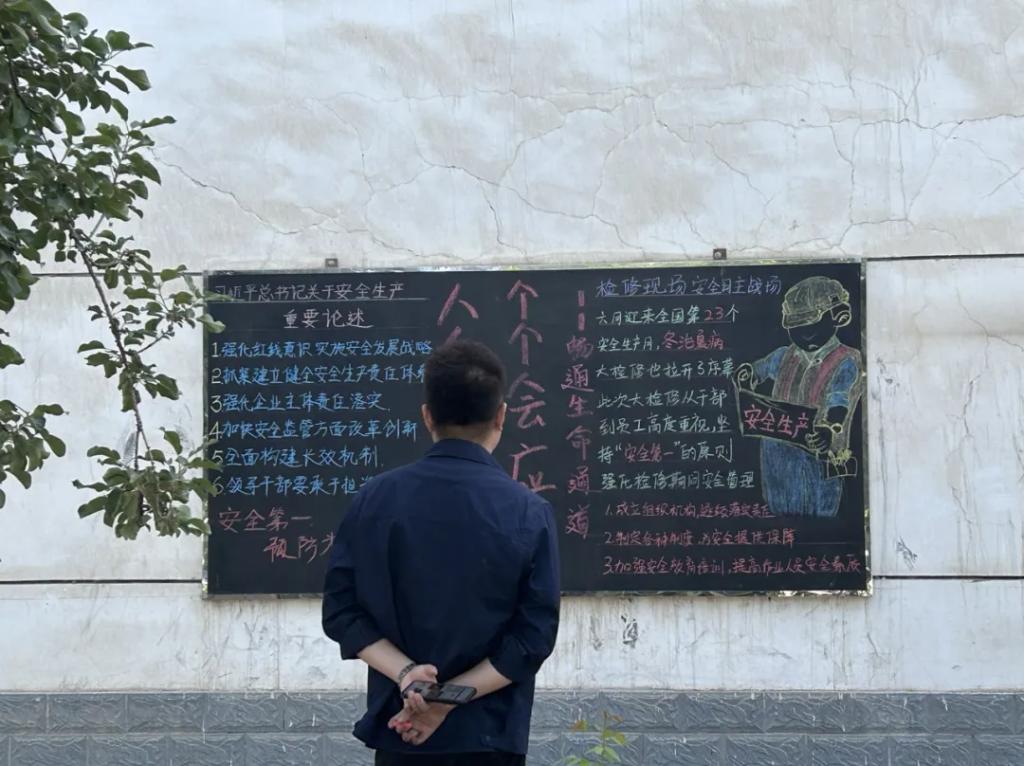 习近平总书记关于安全生产
重要论述
1强化红线意识 实施安全发展战略
2抓紧建立健全安全生产责任体
3强化企业主体责任落实.
4加快安全监管方面改革创新
5全面构建长效机制.
6领导干部要敢于担
安全第一
预防
人
个个会应
——畅通生命通道
检修现场安全月主战场
六月迎来全国第23个
安全生产月,冬治夏病
大检修也拉开了序幕
此次大检修从干部
到员工高度重视,坚
持"安全第一"的原则
强化检修期间安全管理
1.成立组织机构,逐级落实责任
2.制定各种制度,为安全提供保障
3.加强安全教育培训,提高作业人员安全素质
安全生产